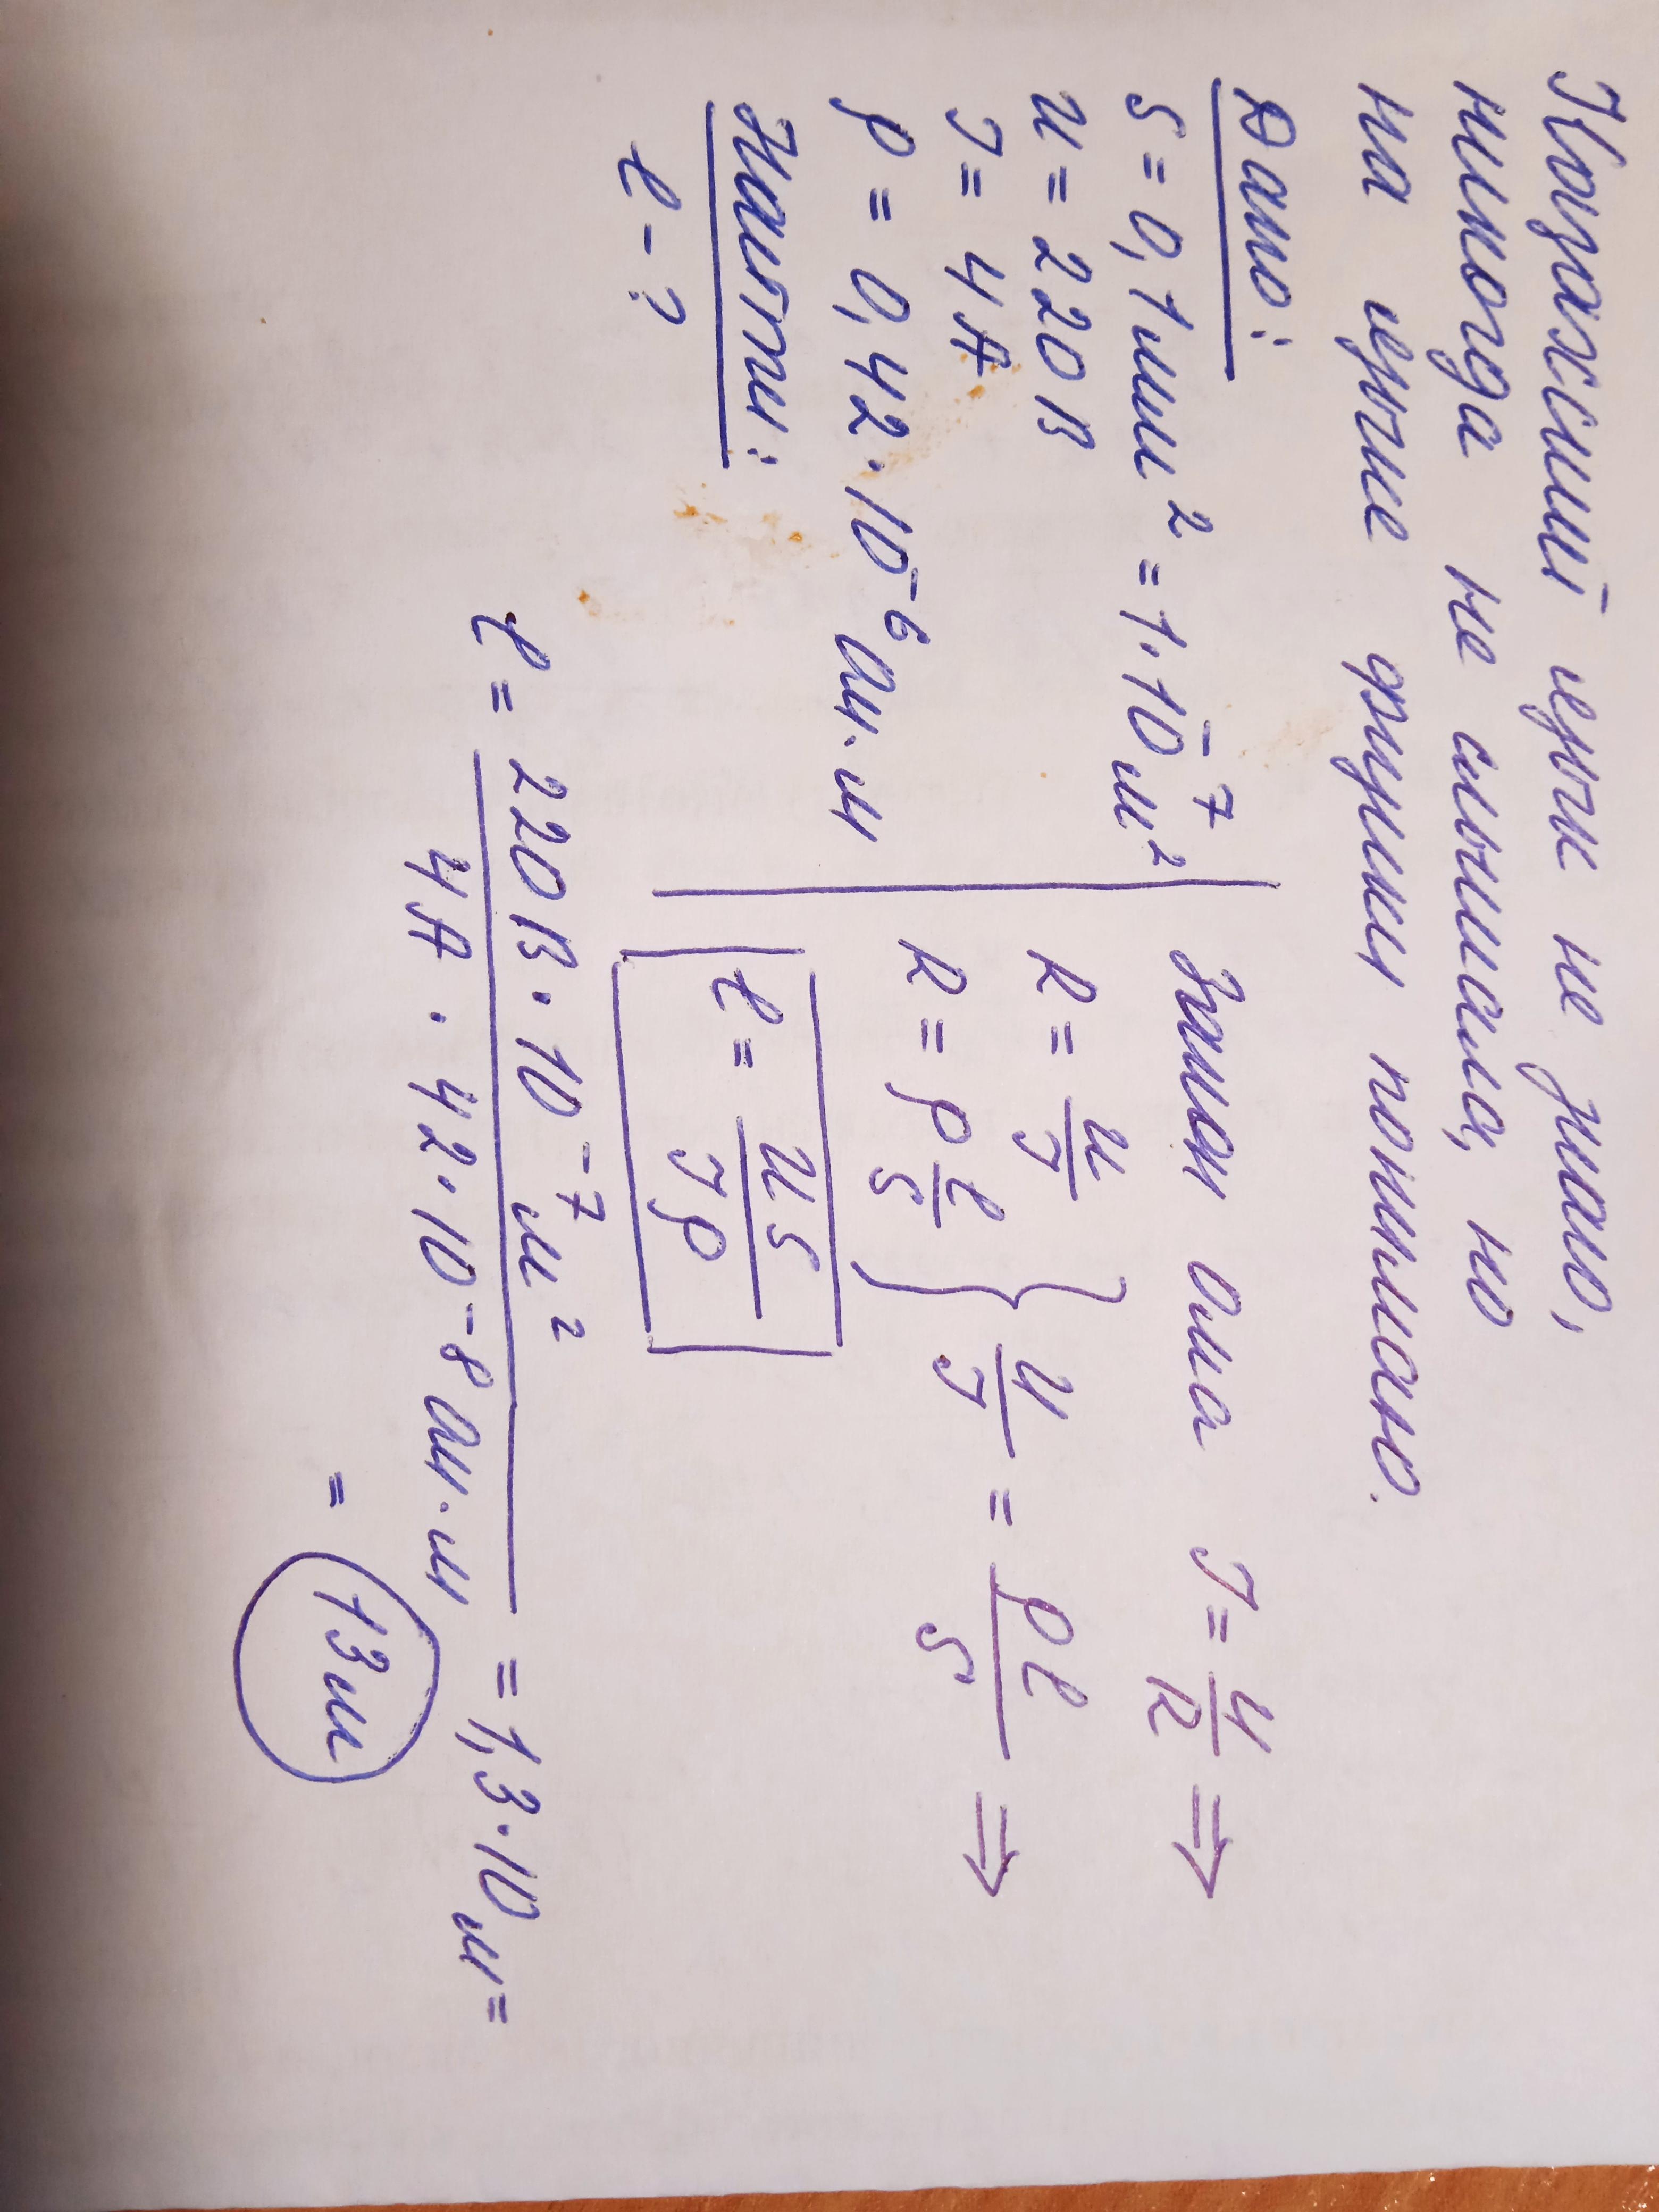 Казахский язык не знаю,
никогда не слышала, но
на языке физики понимаю.
Дано:
S = 0,1 мм² = 1·10⁻⁷ м²
U = 220 В
I = 4 А
ρ = 0,42·10⁻⁶ Ом·м
Найти:
ℓ - ?
Закон Ома I = U/R ⇒
R = U/I
R = ρ ℓ/S } U/I = ρℓ/S ⇒
ℓ = US/Iρ
ℓ = 220 В·10⁻⁷ м² / 4 А · 42·10⁻⁸ Ом·м = 1,3·10 м =
= 13 м